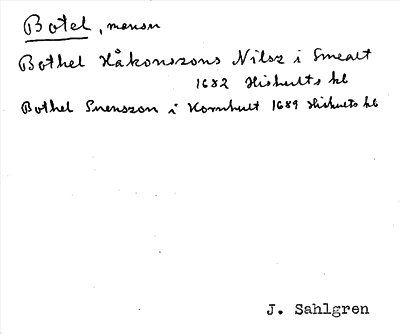 Botel, mansn
Bothel Håkonszons Nilsz i Smealt
1682 Hishults kb
Bothel Svenszon i Kornhult 1689 Hishults kb
J. Sahlgren